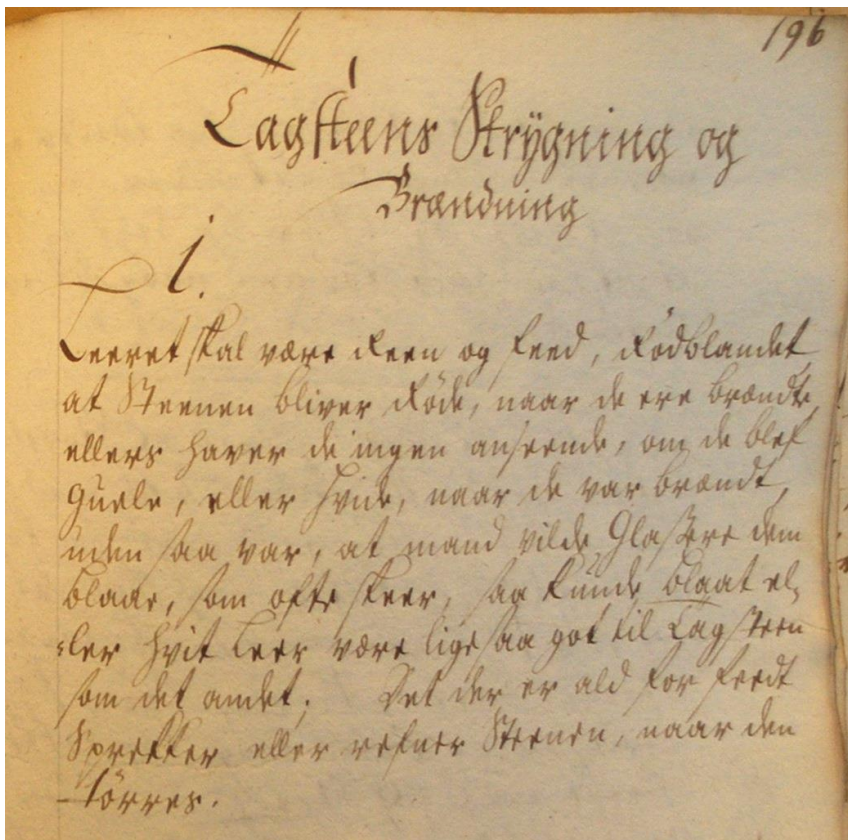 196
Tagsteens Strÿgning og
Brændning
1.
Leeret skal være Reen og feed, Rödblandet
at Steenen bliver Röde, naar de ere brændte,
ellers haver de ingen anseende, om de blef
guele, eller hvide, naar de var brændt,
uden saa var, at mand vilde Glassere dem
blaae, som ofte skeer, saa kunde blaat el,
:ler hvit Leer være lige saa got til Tagsteen
som det andet. Det der er ald for feedt
Sprekker eller refner Steenen, naar den
törres.